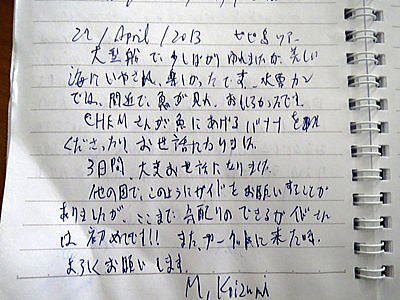 22/April/2013 セセ島ツアー
大型船で、少しばかりゆれましたが、美しい
海にいやされ、楽しかったです。水中カン
では、間近で、魚が見れ、おもしろかったです。
CHEMさんが魚にあげるバナナを
くださったり、お世話になりました。
3日間、大変お世話になりました。
他の国で、このようにガイドをお願いすてしてか
ありましたが、ここまで気配りのできるガイドさん
は初めてです!! また、に来た時、
よろしくお願いします。
M, Koizumi